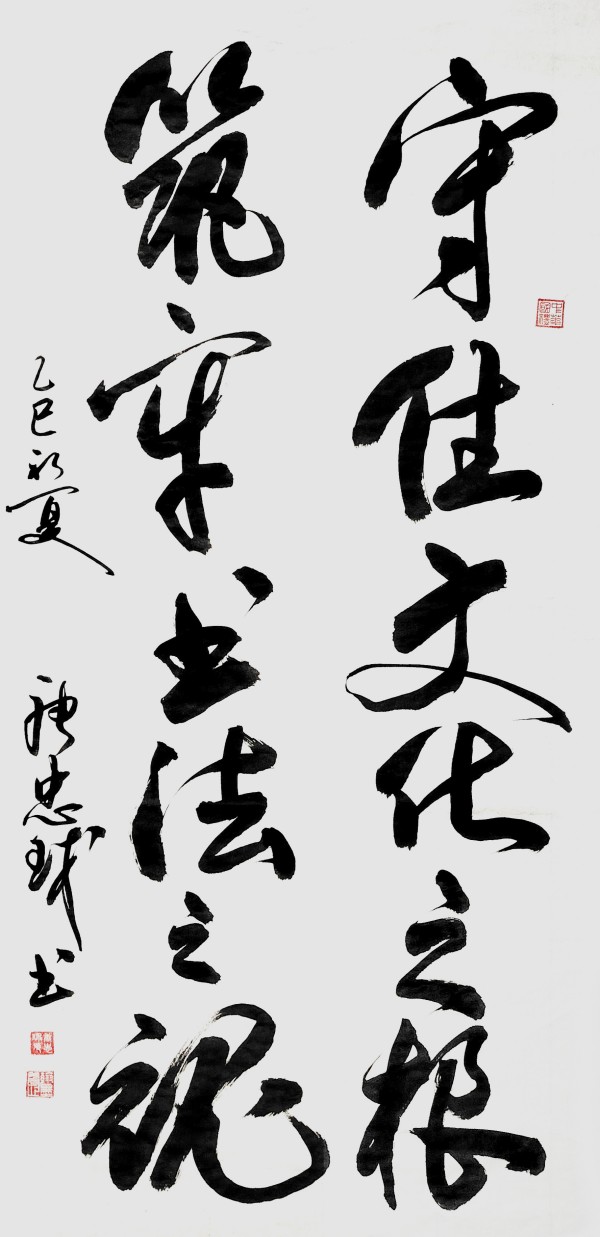 守住文化之根
筑牢书法之魂
乙巳初夏
忠球书